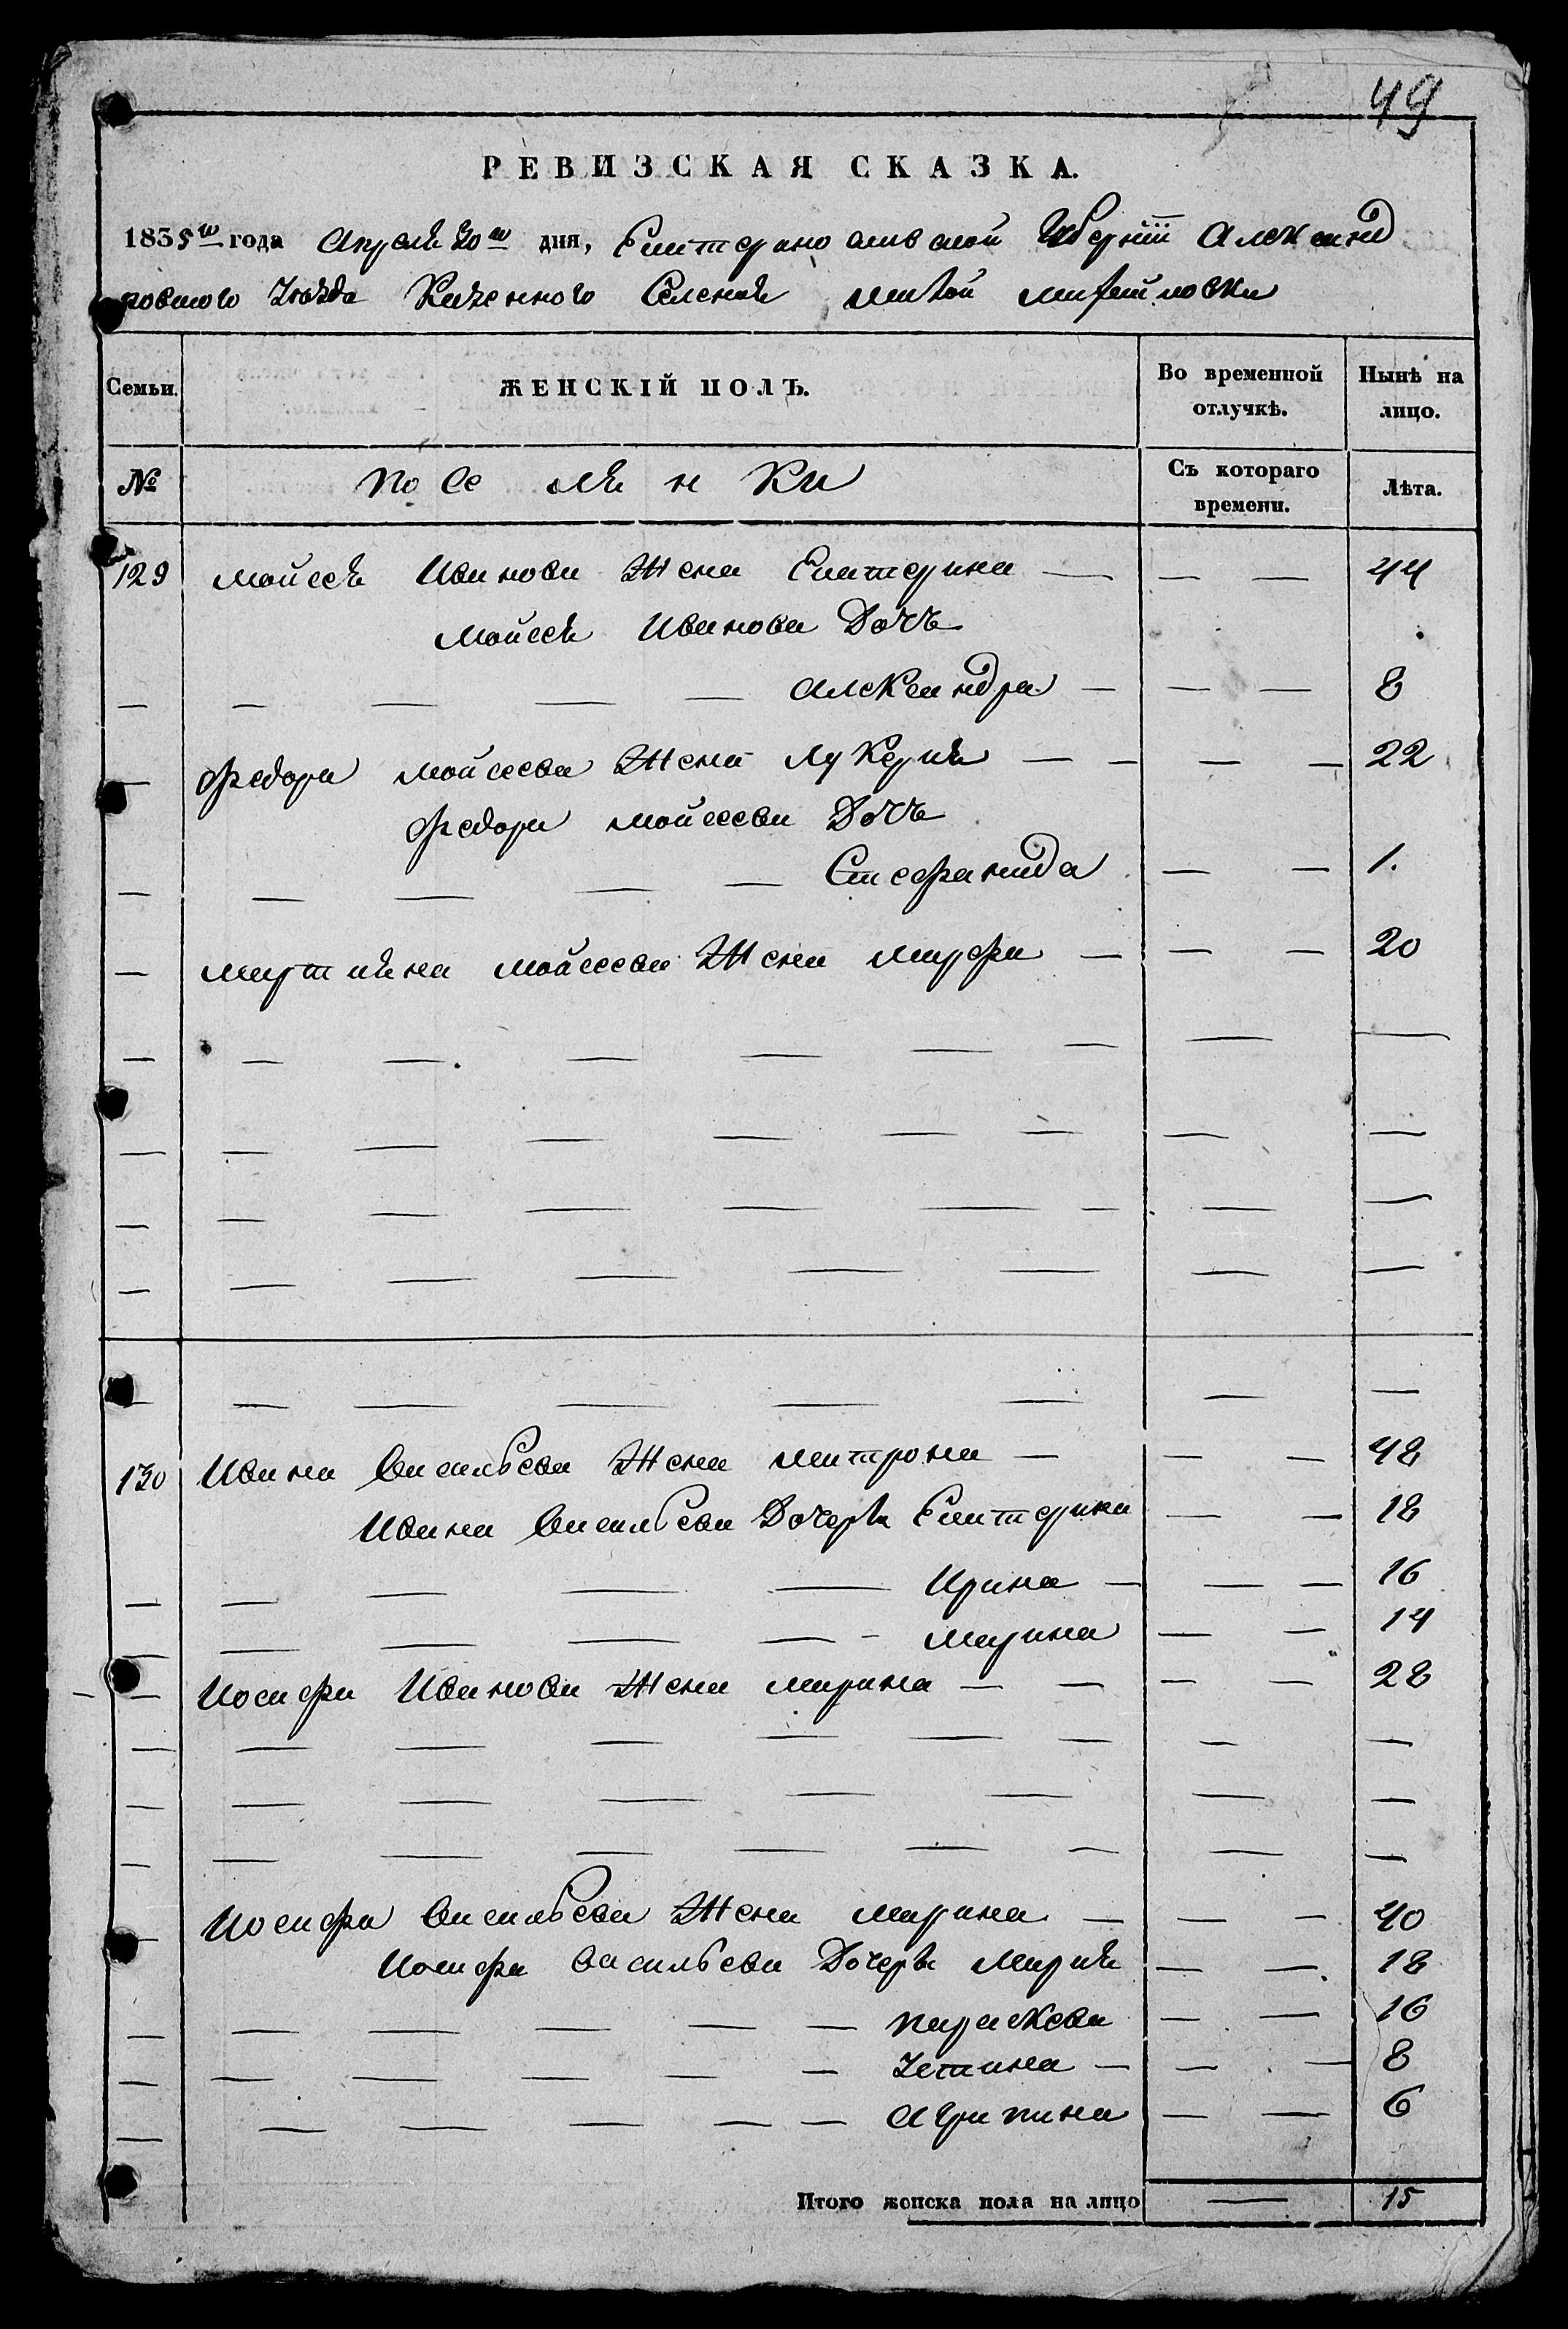 49
РЕВИЗСКАЯ СКАЗКА.
1835го года Апреля 30го дня, Екатериносливской Губернiи Александ
ровского Уезда Казенного Селения малой михайловки
Семьи. ЖЕНСКIЙ ПОЛЪ. Во временной отлучкѣ. Нынѣ на лицо.
№ поселянки Съ котораго времени. Лѣта.
129 Мойсея Иванова Жена Екатерина — — — 44
Мойсея Иванова Дочь
— — — — — Александра — — — 8
— Федора Мойсеева Жена Лукерия — — — — 22
Федора Мойсеева Дочь
— — — — — Стефанида — — 1.
— мартина мойсеева Жена марфа — — — 20
130 Ивана Васильева Жена матрона — — — 48
Ивана Васильева Дочеря Екатерина — — 18
— — — — — Ирина — — — 16
— — — — — - Марина — — 14
— Иосифа Иванова Жена марина — — — — 28
— Иосифа Васильева Жена марина — — — 40
Иосифа Васильева Дочеря Мария — — 18
— — — — — — параскева — — 16
— — — — — — Устина — — — 8
— — — — — — Агрипина — — 6
Итого женска пола на лицо — 15